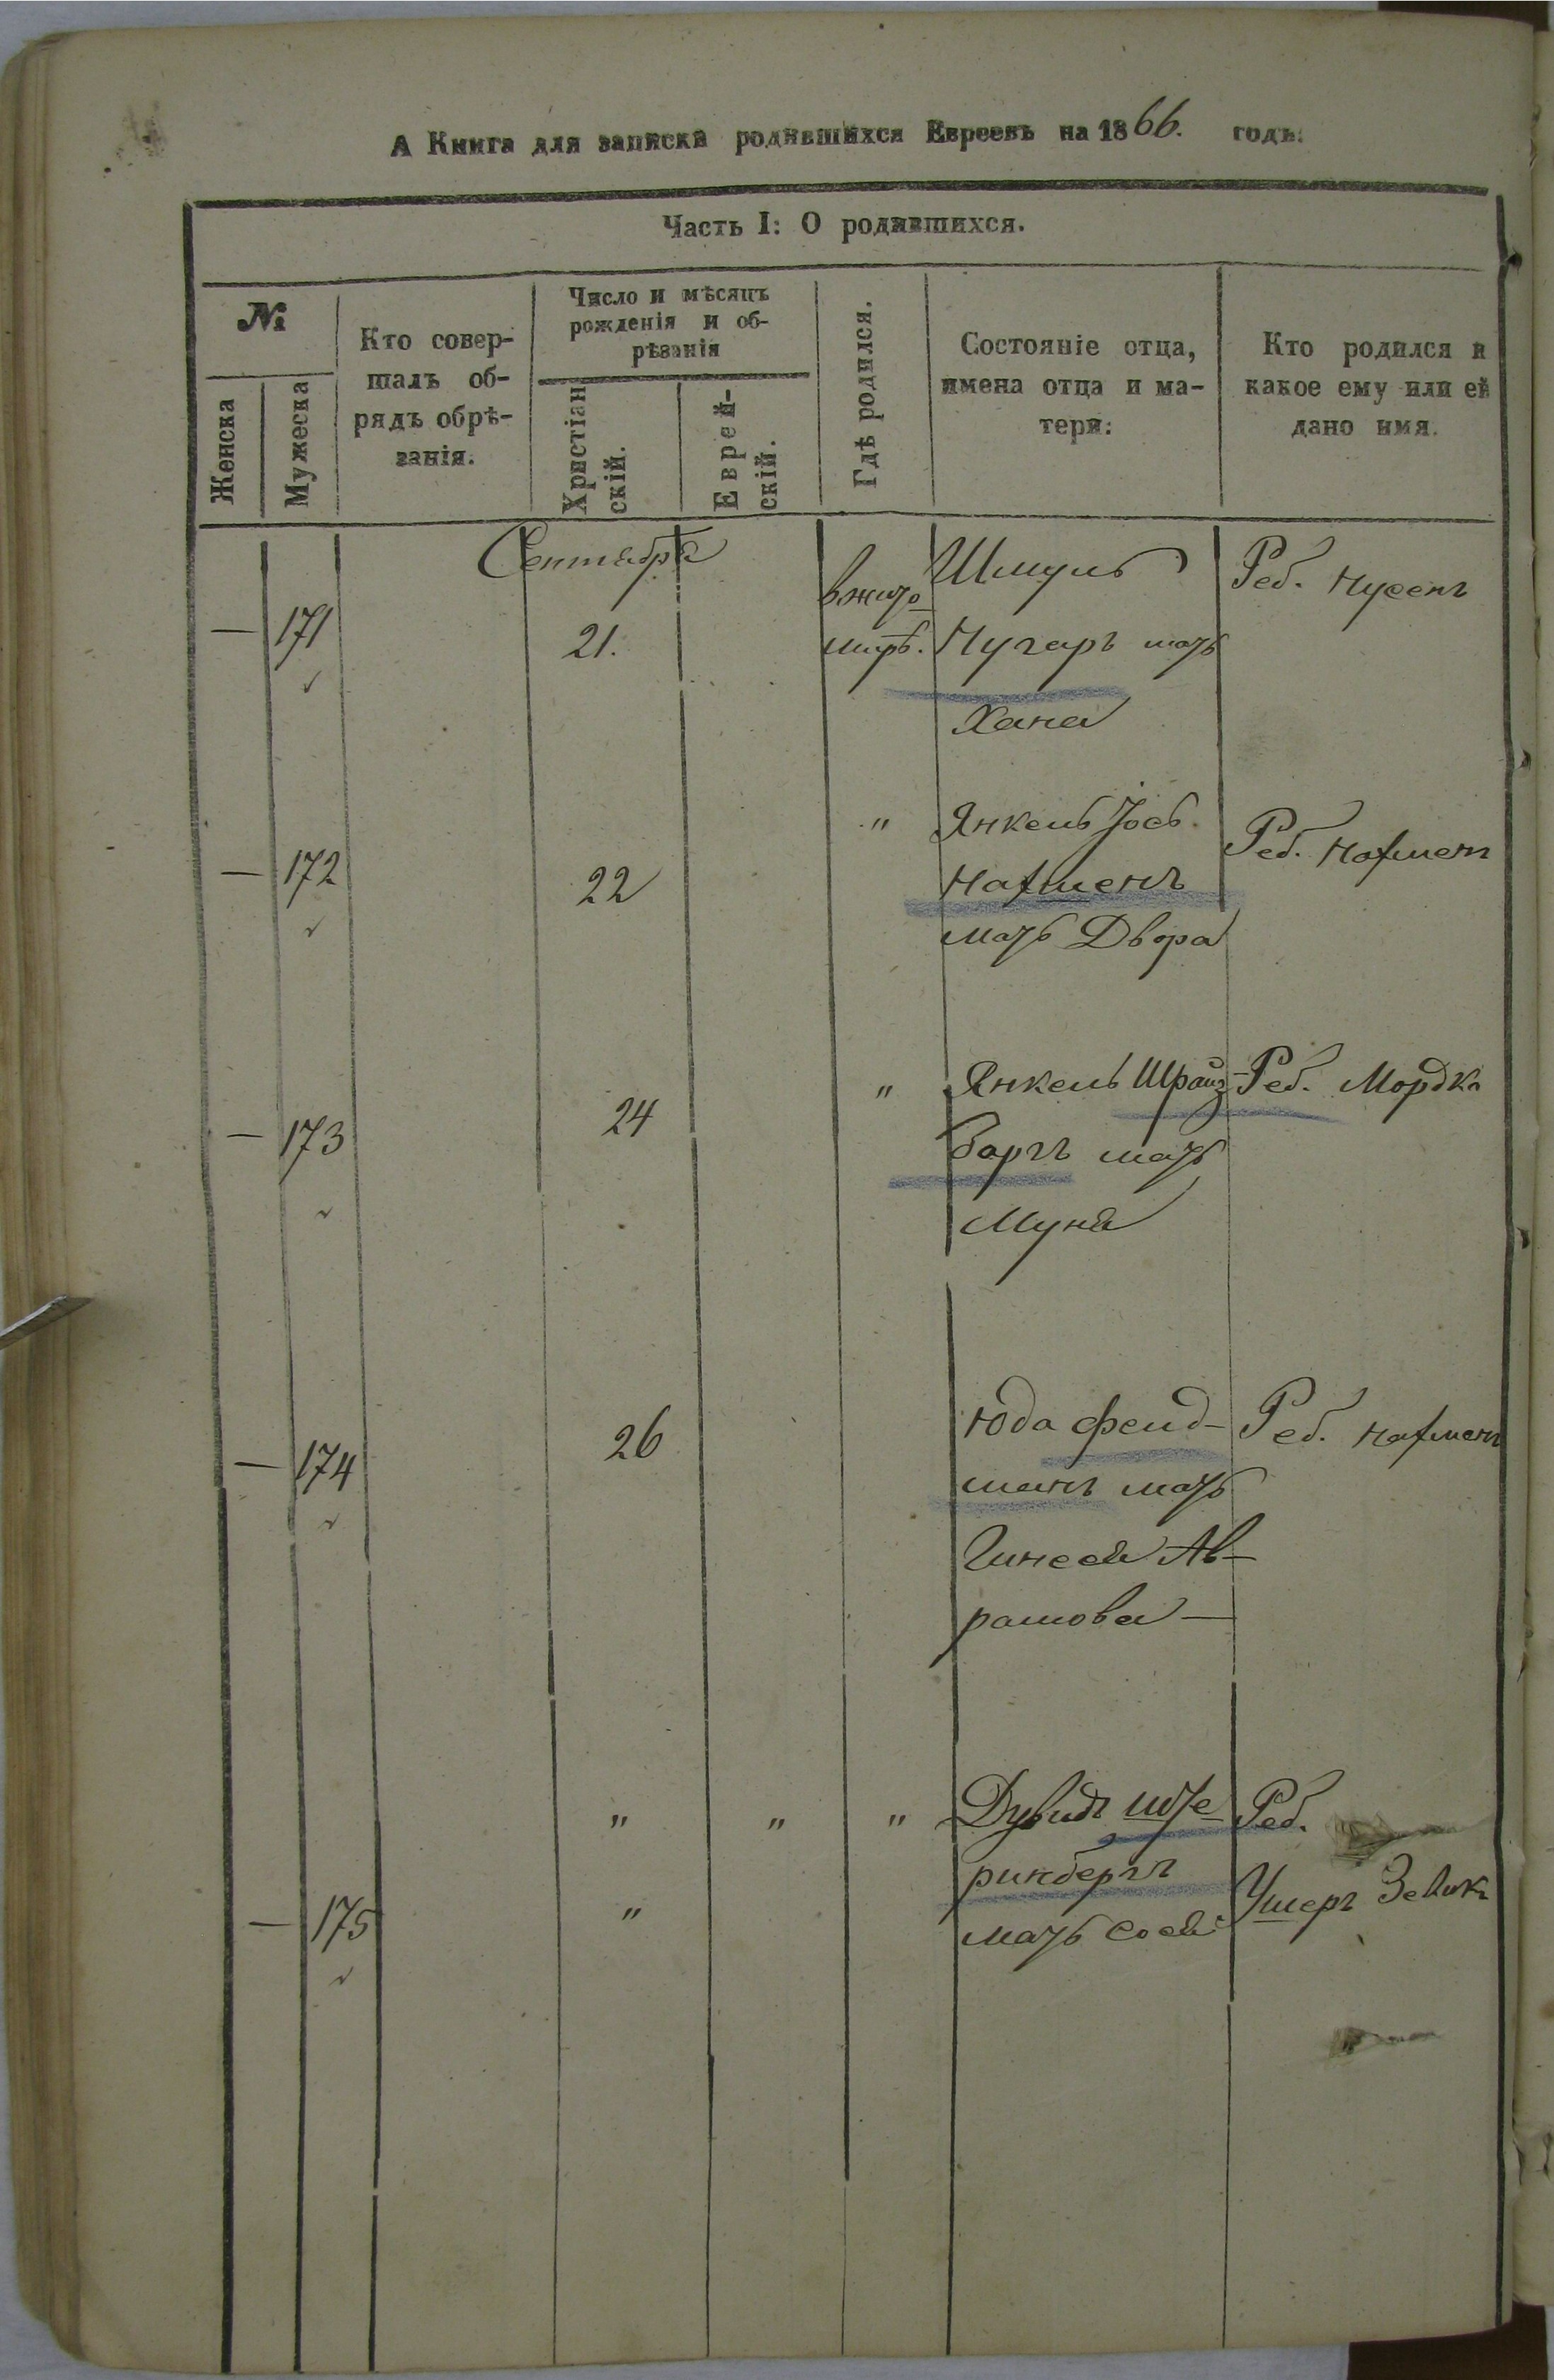 А Книга для записки родившихся Евреевъ на 1866. годъ:
Часть I: О родившихся.
№
Женска
Мужеска
Кто совер-
шалъ об-
рядъ обрѣ-
занія.
Число и мѣсяцъ
рожденія и об-
рѣзанія
Христіан
скій.
Еврей-
скій.
Гдѣ родился.
Состояніе отца,
имена отца и ма-
тери:
Кто родился и
какое ему или ей
дано имя.
Сентября
— 171
21.
вжито
мирѣ.
Шмуль
Чугаръ мать
Хана
Реб. Нусенъ
— 172
22
" Янкель Іось
Нахменъ
мать Двора
Реб. Нахмен
— 173
24
" Янкель Шрайз-
баргъ мать
Муня
Реб. Мордко
— 174
26
Юда Фельд-
манъ мать
Гинеся Ав-
рамова —
Реб. Нахмен
— 175
" " "
"
Дувидъ Ште
ринбергъ
мать Сося
Реб.
Ушеръ Зелик